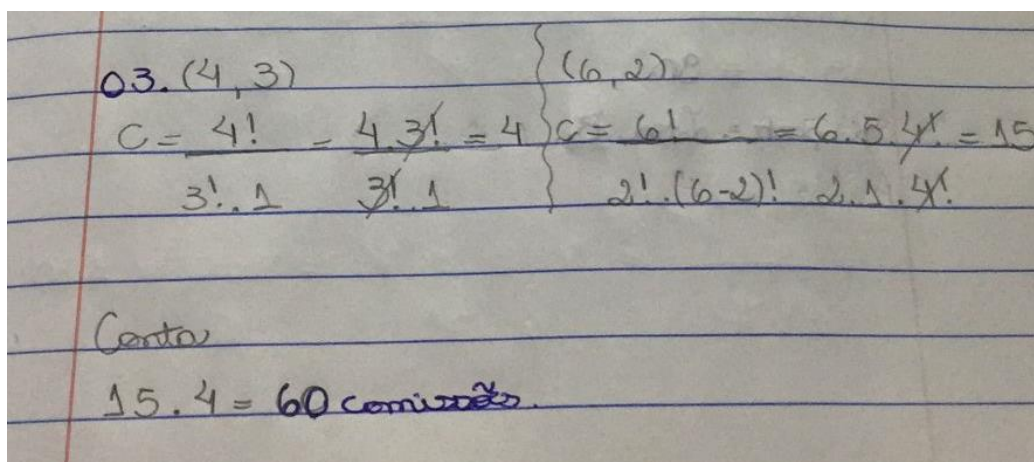 03. (4,3)
C = 4! / 3!.1 = 4.3! / 3!.1 = 4
(6,2)
C = 6! / 2!.(6-2)! = 6.5.4! / 2.1.4! = 15
Conta
15.4 = 60 comissões.